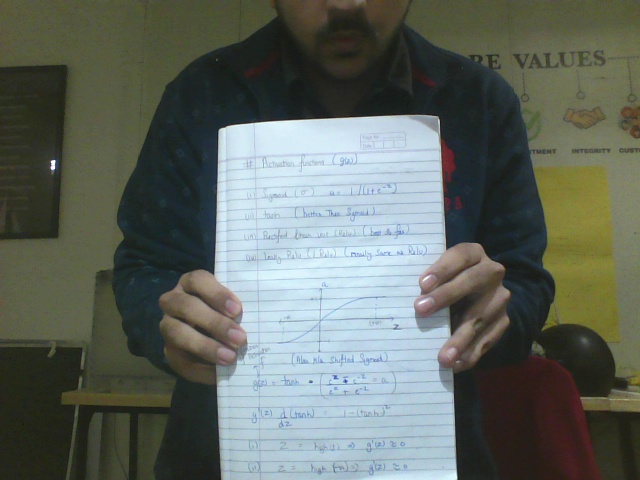 RE VALUES
TMENT INTEGRITY CUSTO
Page No.
Date
# Activation functions (g(z))
(i) Sigmoid (σ) a = 1/(1+e^-z)
(ii) tanh (better than Sigmoid)
(iii) Rectified linear unit (Relu) (best so far)
(iv) Leaky Relu (L Relu) (mostly Same as Relu)
a
z
(Also aka Shifted Sigmoid)
g(z) = tanh = (e^z - e^-z / e^z + e^-z = a)
g'(z) d/dz (tanh) = 1 - (tanh)^2
(i) z = high(+) ⇒ g'(z) ≈ 0
(ii) z = high (-) ⇒ g'(z) ≈ 0